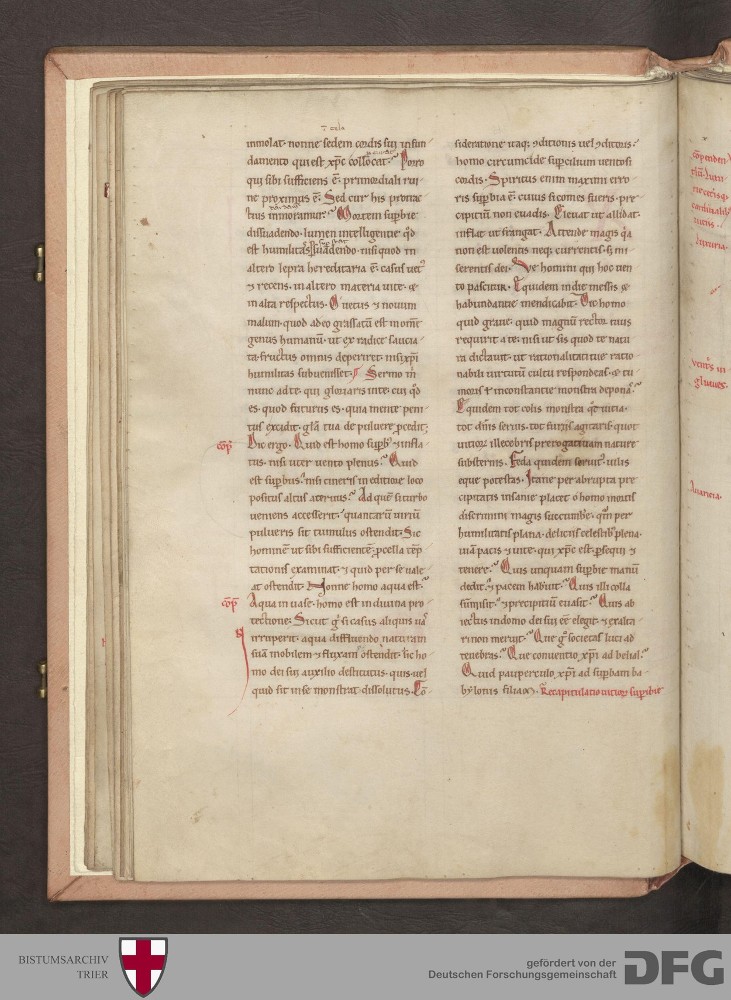 inmolat· nonne sedem cordis sui in fun
damento qui est xp̄c collocat· Porro
qui sibi sufficiens ē· primordiali rui
ne proximus ē· Sed cur his protrac
tius inmoramur· Mortem suꝑbie
dissuadendo· lumen intelligentie qd̄
est humilitas suadendo· nisi quod in
altero lepra hereditaria ē· casus uet᷒
⁊ recens· in altero materia uite· ⁊
in alta respectus· O uetus ⁊ nouum
malum· quod adeo grassatū est in om̄e
genus humanū· ut ex radice saucia
ta· fructus omnis deperiret· nisi xp̄i
humilitas subuenisset· Sermo m̄
nunc ad te· qui gloriaris in te· cui qd̄
es· quod futurus es· quia mente peni
tus excidit· gl̄a tua de puluere ꝓcedit·
cōp̄
Dic ergo· Quid est homo suꝑb᷒ ⁊ infla
tus· nisi uter uento plenus· Quid
est suꝑbus· nisi cineris in editiore loco
positus altus aceruus· Ad quē si turbo
ueniens accesserit· quantarū uiriū
pulueris sit cumulus ostendit· Sic
hominē ut sibi sufficientē· ꝓcella tēp
tationis examinat· ⁊ quid per se uale
at ostendit· Nonne homo aqua est·
cōp̄
Aqua in uase· homo est in diuina pro
tectione· Sicut g̊ si casus aliquis uas
irruperit· aqua diffluendo naturam
suā mobilem ⁊ fluxam ostendit· sic ho
mo dei sui auxilio destitutus· quis uel
quid sit in se monstrat dissolutus· Cō
sideratione itaq; ꝯditionis uel ꝯditoris·
homo circumcide suꝑcilium uentosi
cordis· Spiritus enim maximi erro
ris suꝑbia ē· cuius si comes fueris· pre
cipitiū non euadis· Eleuat ut allidat·
inflat ut frangat· Attende magis q̄a
non est uolentis neq; currentis· s; mi
serentis dei· Ve homini qui hoc uen
to pascitur· Equidem in die messis ⁊
habundantie mendicabit· Dic homo
quid graue· quid magnū rector tuus
requirit a te· nisi ut sis quod te natu
ra dictauit· ut rationalitati tue ratio
nabili uirtutū cultu respondeas· ⁊ tu
moris ⁊ inconstantie monstra deponas·
Equidem tot colis monstra qt̄ uitia·
tot dn̄is seruis· tot furiis agitaris· quot
uitiorꝫ illecebris prerogatiuam nature
substernis· Feda quidem seruit᷒· uilis
eque potestas· Itane per abrupta pre
cipitatis insanie placet o homo mortis
discrimini magis succumbe· qm̄ per
humilitatis plana· deliciis celestib᷒ plena·
uiā pacis ⁊ uite· qui xp̄c est ꝓsequi ⁊
tenere· Quis unquam suꝑbie manū
dedit· ⁊ pacem habuit· Quis illi colla
sūmisit· ⁊ precipitiū euasit· Quis ab
iectus in domo dei sui ēē elegit· ⁊ exalta
ri non meruit· Que g̊ societas luci ad
tenebras· Que conuentio xp̄i ad belial·
Quid pauperculo xp̄i ad suꝑbam ba
bylonis filiam· Recapitulatio uitiorꝫ suꝑbie
luxuria·
uent᷒s in
gluuies·
Auaricia·
BISTUMSARCHIV
TRIER
gefördert von der
Deutschen Forschungsgemeinschaft
DFG